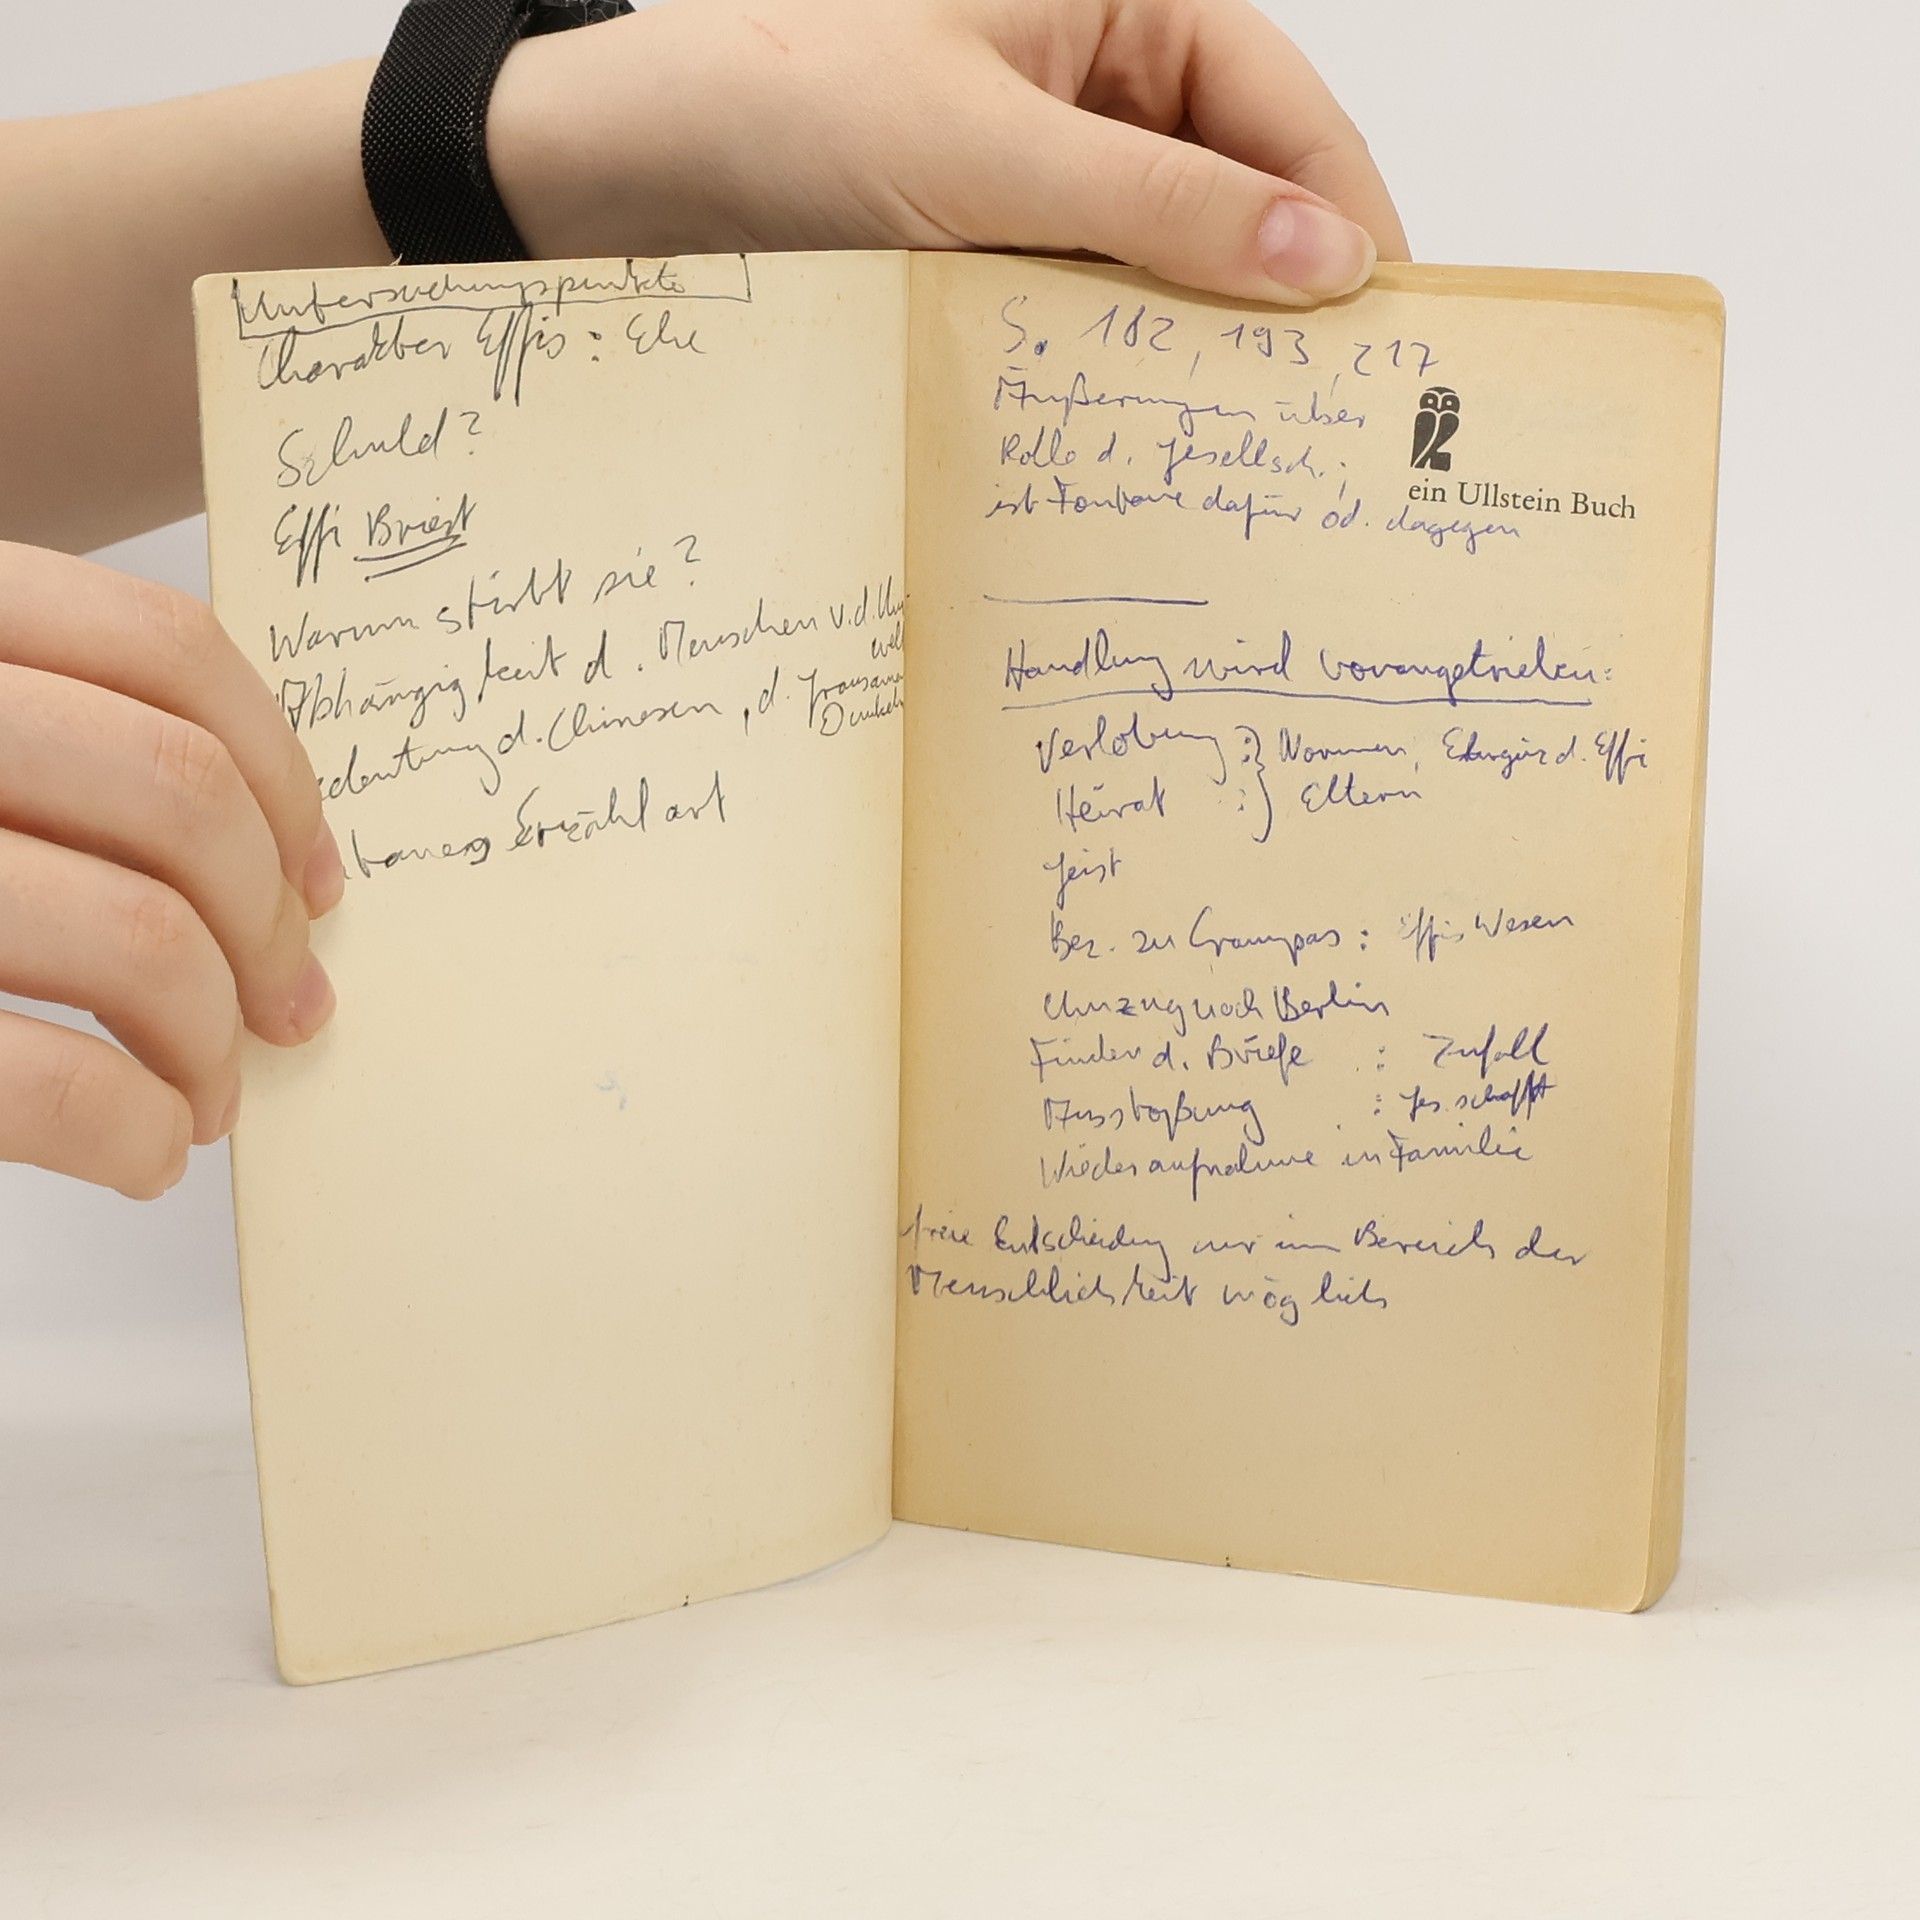 Untersuchungspunkte
Charakter Effis: Ehe
Schuld?
Effi Briest
Warum stirbt sie?
Abhängigkeit d. Menschen v. d. Um
welt
edeutung d. Chinesen, d. grausame
Dunkeln
Erzählart
S. 182, 193, 217
Äußerungen über
Rolle d. Gesellsch.;
ist Fontane dafür od. dagegen
ein Ullstein Buch
Handlung wird vorangetrieben:
Verlobung : Normen, Ehrgeiz d. Effi
Heirat : Eltern
Geist
Bez. zu Crampas: Effis Wesen
Umzug nach Berlin
Finden d. Briefe : Zufall
Ausstoßung : Ges.schaft
Wiederaufnahme in Familie
freie Entscheidung nur im Bereich der
Menschlichkeit möglich